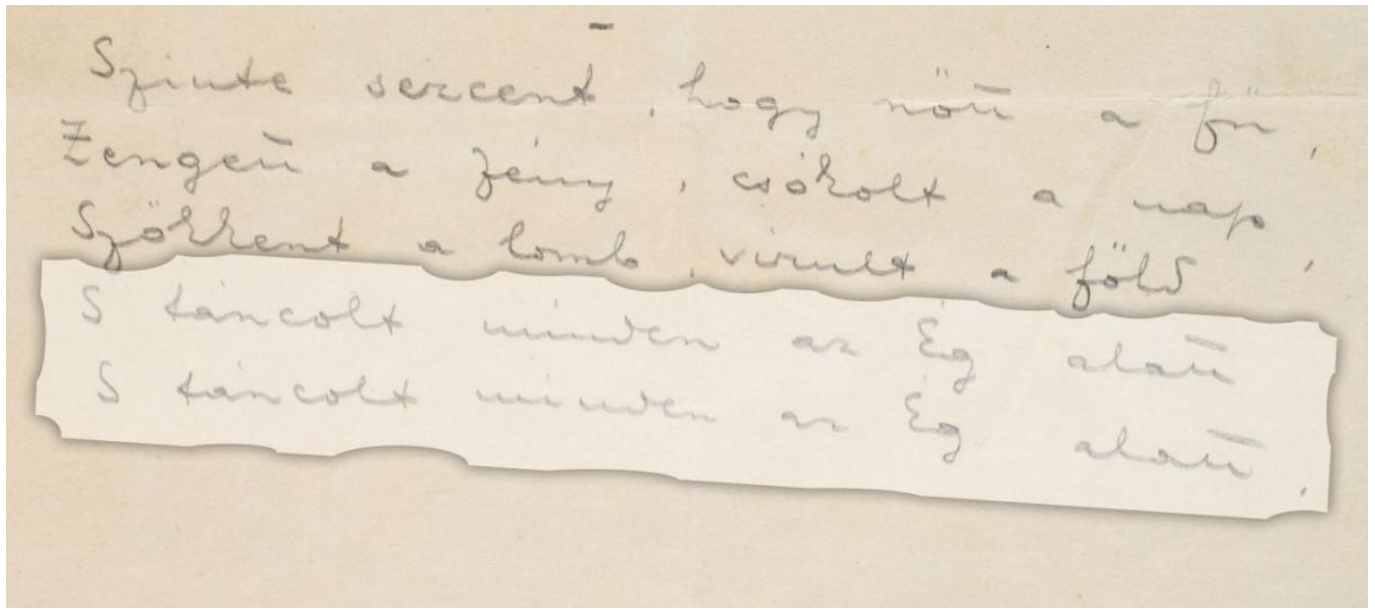 Szinte sercent, hogy nőtt a fű,
Zengett a fény, csókolt a nap,
Szökkent a lomb, virult a föld
S táncolt minden az Ég alatt
S táncolt minden az Ég alatt,